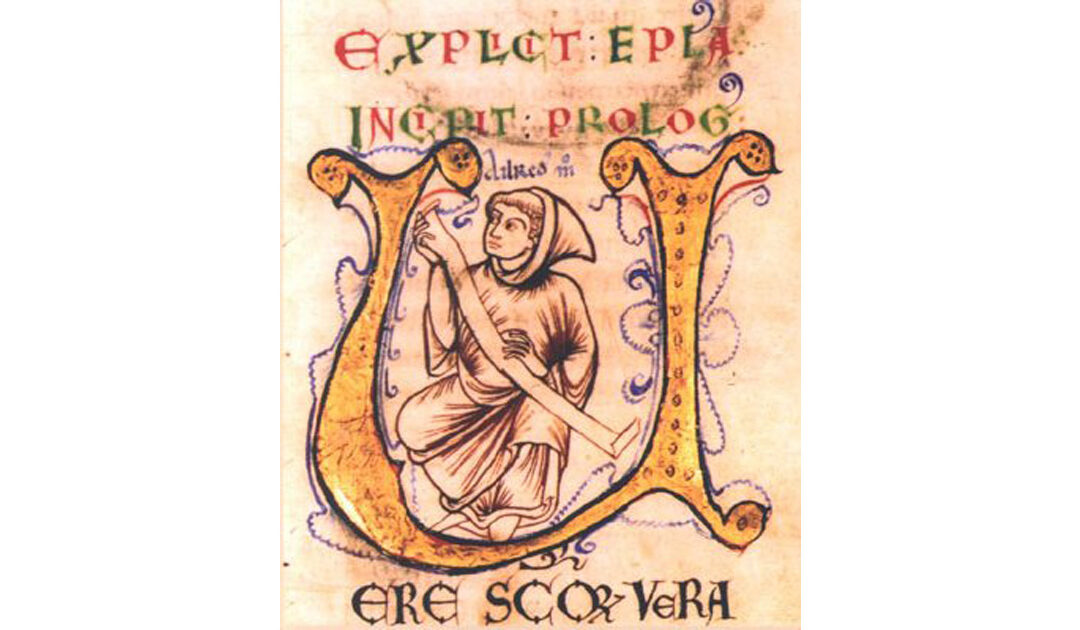 EXPLICIT : EP̅LA
INCIPIT : PROLOGꝰ
ailred' mͦ
U
ERE SCOꝜ VERA